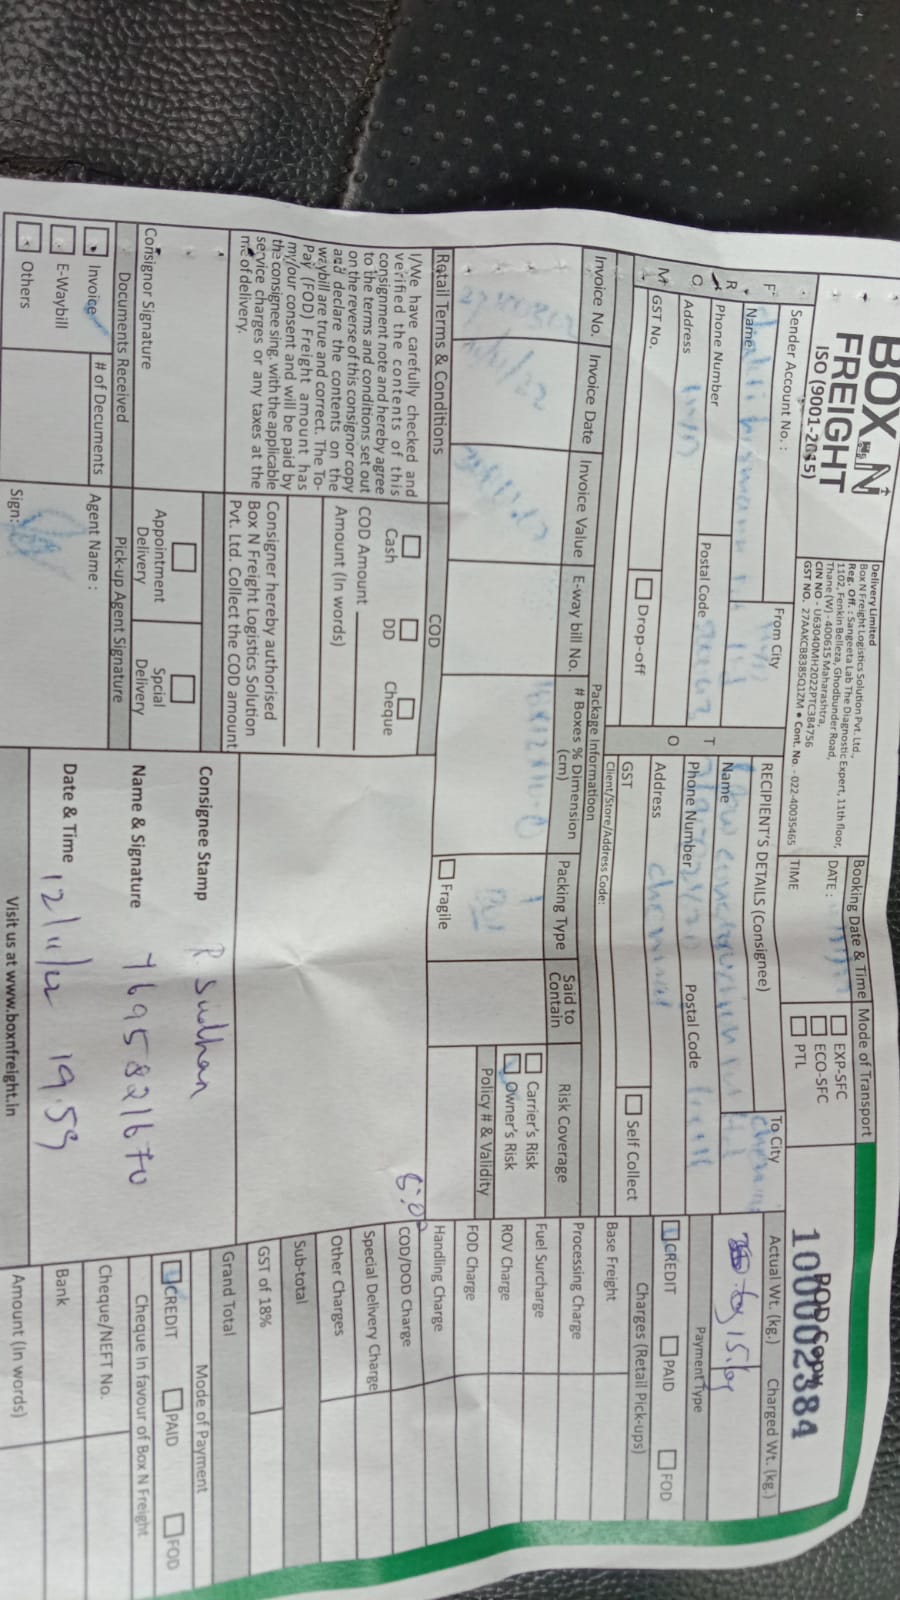 BOX N
FREIGHT
ISO (9001-2015)
Delivery Limited
Box N Freight Logistics Solution Pvt. Ltd.,
Reg. Off. : Sangeeta Lab The Diagnostic Expert, 11th floor,
1102, Fenkin Belleza, Ghodbunder Road,
Thane (W) - 400615 Maharashtra,
CIN NO - U63040MH2022PTC384756
GST NO. 27AAKCB8385Q1ZM • Cont. No. - 022-40035465
Booking Date & Time
DATE :
TIME
Mode of Transport
EXP-SFC
ECO-SFC
PTL
POD Copy
100002384
FROM
Sender Account No. :
From City
Name
Phone Number
Postal Code
Address
GST No.
Drop-off
TO
RECIPIENT'S DETAILS (Consignee)
To City
Chennai
Name construction Pvt Ltd
Phone Number
Postal Code
Address chennai
GST
Self Collect
Client/Store/Address Code:
Actual Wt. (kg.) Charged Wt. (kg.)
15. kg
Payment Type
CREDIT PAID FOD
Charges (Retail Pick-ups)
Base Freight
Processing Charge
Fuel Surcharge
ROV Charge
FOD Charge
Handling Charge
COD/DOD Charge
Special Delivery Charge
Other Charges
Sub-total
GST of 18%
Grand Total
Package Informatioon
Invoice No. Invoice Date Invoice Value E-way bill No. # Boxes % Dimension (cm) Packing Type Said to Contain Risk Coverage
Carrier's Risk
Owner's Risk
Policy # & Validity
Fragile
Retail Terms & Conditions
I/We have carefully checked and
verified the contents of this
consignment note and hereby agree
to the terms and conditions set out
on the reverse of this consignor copy
and declare the contents on the
waybill are true and correct. The To-
Pay (FOD) Freight amount has
my/our consent and will be paid by
the consignee sing. with the applicable
service charges or any taxes at the
me of delivery.
COD
Cash DD Cheque
COD Amount
Amount (In words)
Consigner hereby authorised
Box N Freight Logistics Solution
Pvt. Ltd. Collect the COD amount
Consignor Signature
Appointment Delivery
Spcial Delivery
Documents Received
Invoice
E-Waybill
Others
# of Documents
Pick-up Agent Signature
Agent Name :
Sign:
Consignee Stamp R. Sudhan
Name & Signature 7695821670
Date & Time 12/11/22 19.59
Visit us at www.boxnfreight.in
Mode of Payment
CREDIT PAID FOD
Cheque In favour of Box N Freight
Cheque/NEFT No.
Bank
Amount (In words)